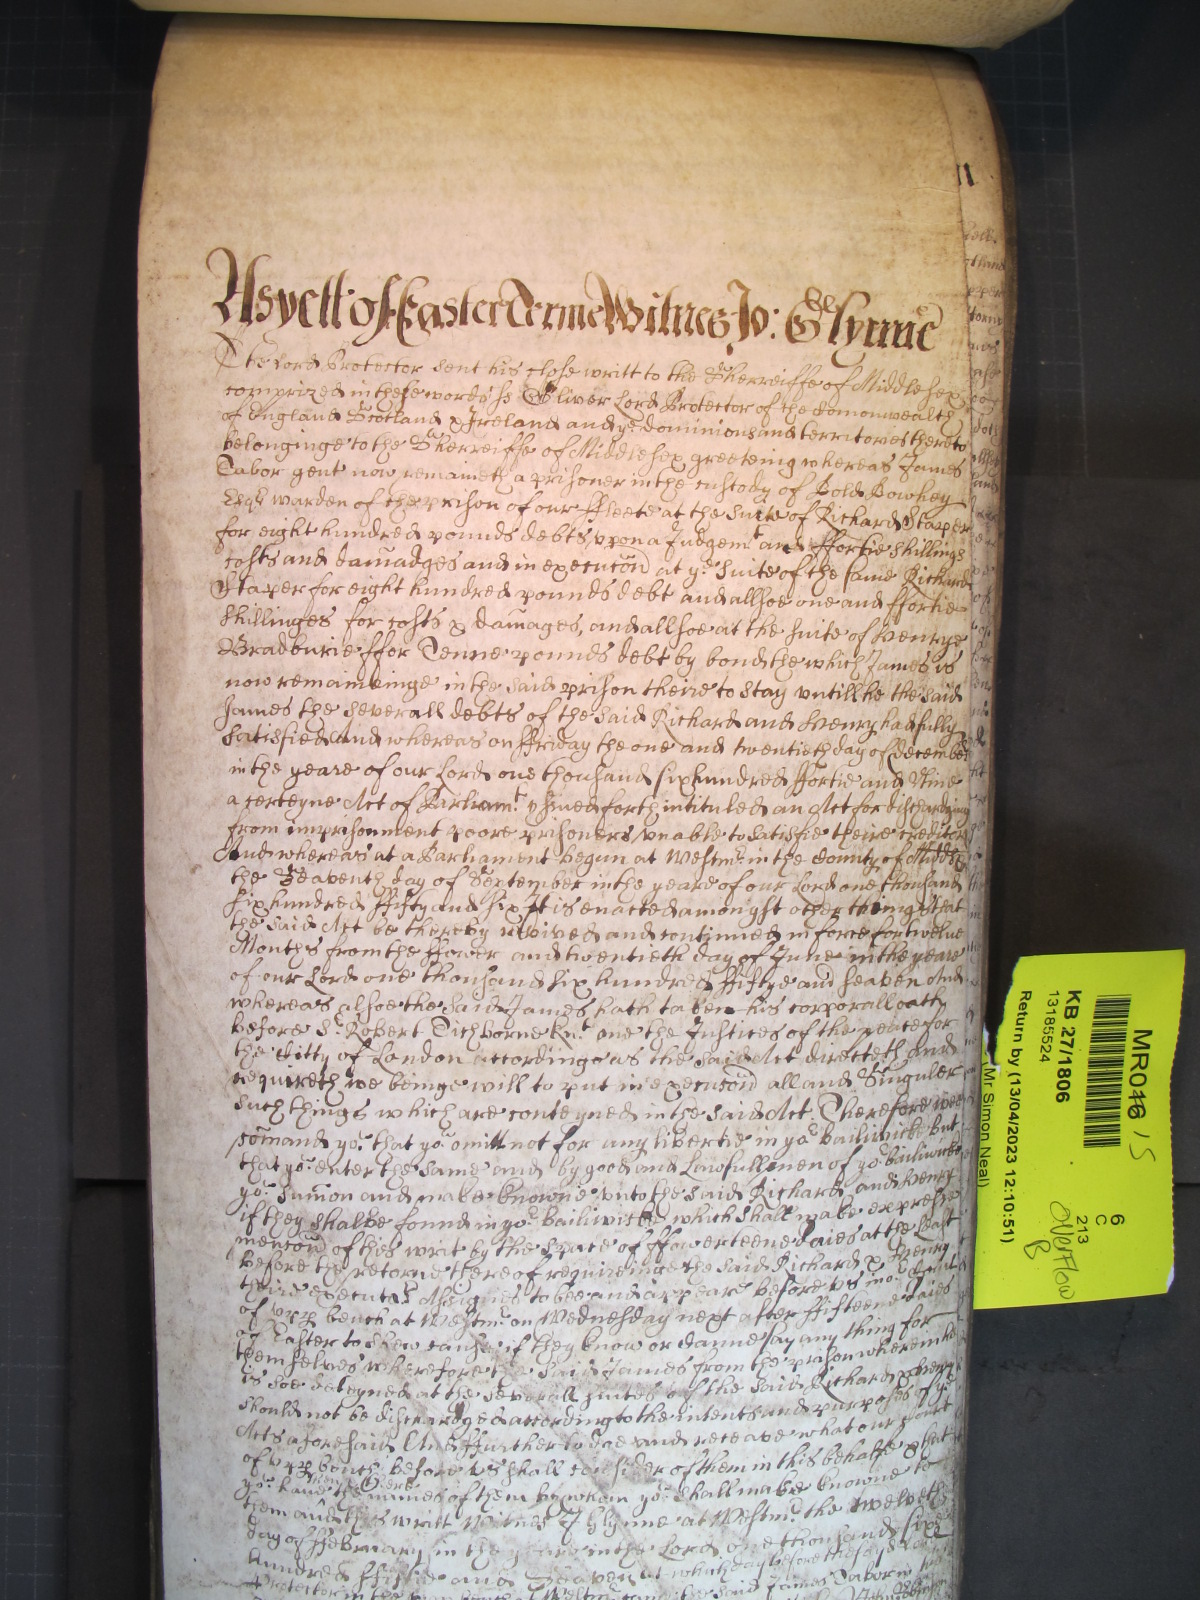 As yett of Easter Terme Witnes Jo: Glynne
The Lord Protector sent his close writt to the Sherreiffe of Middlesex
comprized in these words ss Oliver Lord Protector of the Comonwealth
of England Scotland & Ireland and ye dominions and territories thereto
belonginge to the Sherreiffe of Middlesex greeteing whereas James
Tabor gent now remaineth a prisoner in the custody of Bold Bowhey
Esqr warden of the prison of our Fleete at the suite of Richard Staper
for eight hundred pounds debts upon a Judgemt and ffortie shillings
costs and damadges and in execucon at ye suite of the same Richard
Staper for eight hundred pounds debt and allsoe one and ffortie
shillinges for costs & damages, and allsoe at the suite of Henrye
Bradburie ffor Tenne pounds debt by bond the which James is
now remaineinge in the said prison theire to stay untill he the said
James the severall debts of the said Richard and Henry had fully
satisfied And whereas on ffriday the one and twentieth day of december
in the yeare of our Lord one thousand six hundred ffortie and Nine
a certeyne Act of Parliamt yssued forth intituled an Act for dischardging
from imprisonment poore prisoners unable to satisfie theire creditors
And whereas at a Parliament begun at Westmr in the County of Middx
the Seaventh day of September in the yeare of our Lord one thousand
six hundred ffifty and six It is enacted amongst other things that
the said Act be thereby revived and continued in force for twelve
Months from the ffower and twentieth day of June in the yeare
of our Lord one thousand six hundred ffiftye and seaven And
whereas alsoe the said James hath taken his corporall oath
before Sr Robert Tichborne Knt one the Justices of the peace for
the Citty of London accordinge as the said Act directeth And
requireth we beinge will to put in execucon all and Singuler
such things which are conteyned in the said Act. Therefore wee
comand yo that yo omitt not for any libertie in yor bailiwicke but
that yo enter the same and by good and Lawfull men of yor bailiwicke
yo sumon and make knowne unto the said Richard and Henry
if they shalbe found in yor bailiwick which shall make expresse
mencon of this writ by the space of ffowerteene daies at the least
before the retorne thereof requireinge the said Richard & Henry
theire executrs Assignes to bee and appeare before us in
of upp bench at Westmr on Wednesday next after ffifteene daies
of Easter to shew cause if they know or canne say any thing for
themselves wherefore the said James from the prison wherein he
is soe deteyned at the severall suites of the said Richard & Henry
should not be discharged according to the intents and purposes of ye
Acts aforesaid And ffurther to doe and receave what our Court
of upp bench before us shall consider of them in this behalfe & that
yo have there
the names of them by whom yo shall make knowne to
them and this writt Witnes J Glynne at Westmr the twelveth
day of ffebruary in the yeare in the Lord one thousand sixe
hundred ffiftie and Seaven at which day before the said Lord
Protector in the said James Tabor in
11
MR046 15
KB 27/1806
13185524
Return by (13/04/2023 12:10:51)
(Mr Simon Neal)
6
C
213
Overflow
B